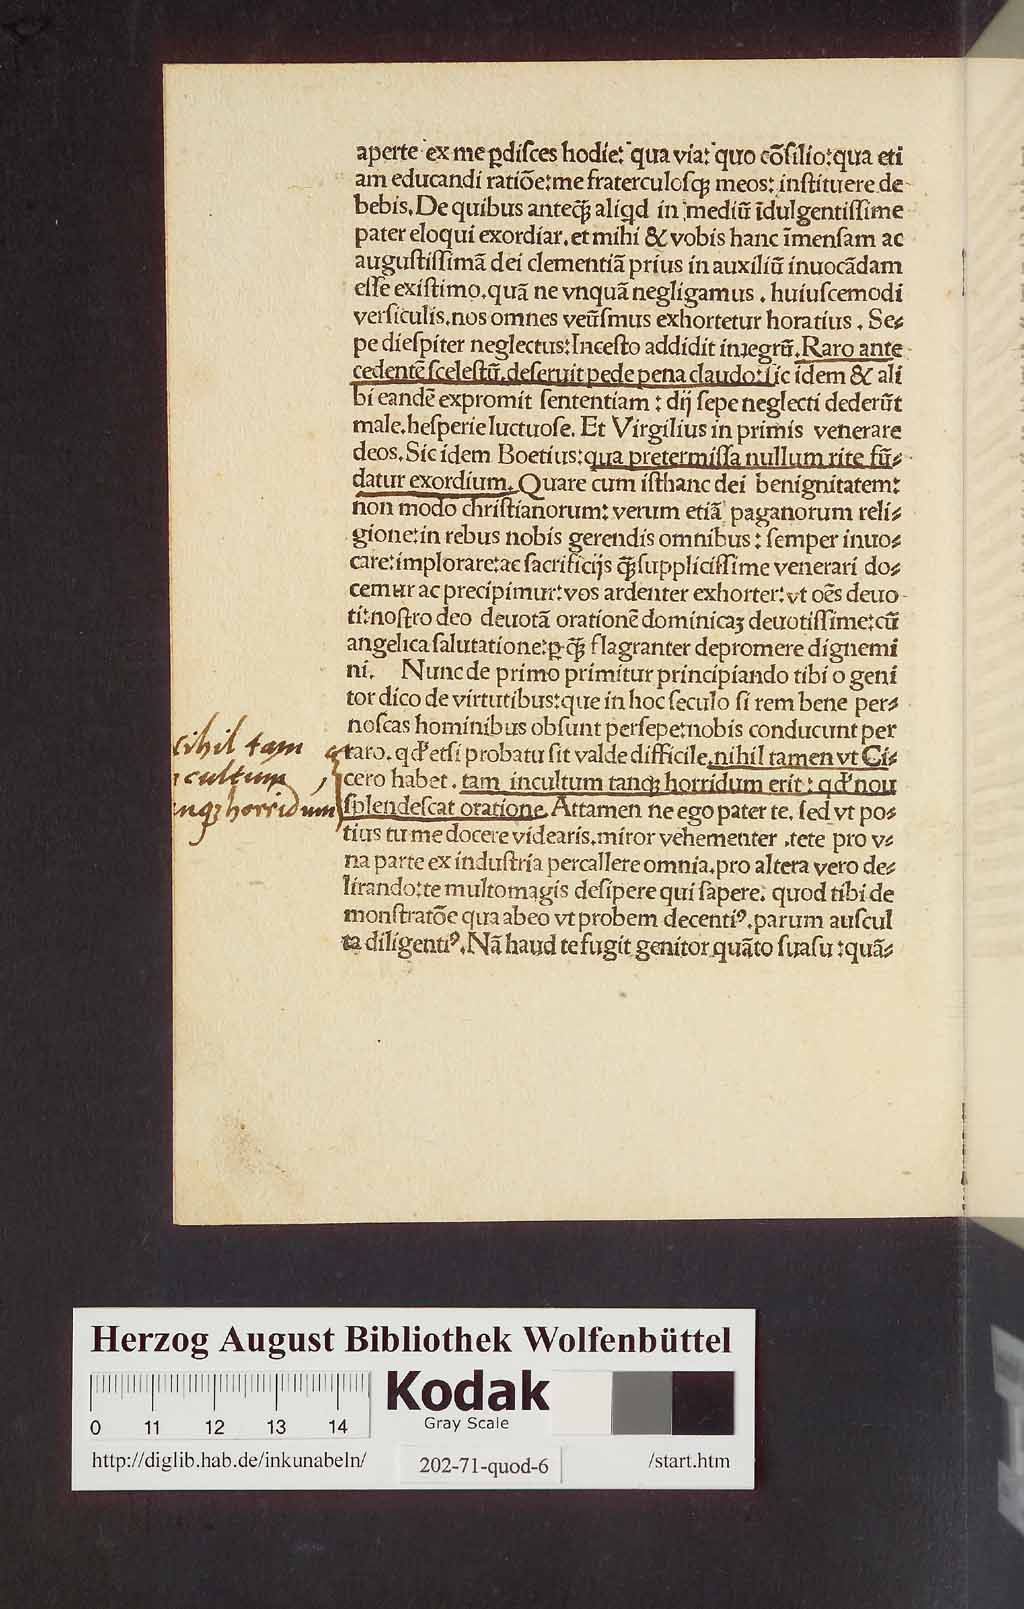 aperte ex me ꝑdiſces hodie: qua via: quo cōſilio: qua eti
am educandi ratiōe: me fraterculoſqꝫ meos: inſtituere de
bebis. De quibus anteqꝫ̄ aliqd in mediū īdulgentiſſime
pater eloqui exordiar. et mihi & vobis hanc īmenſam ac
auguſtiſſimā dei clementiā prius in auxiliū inuocādam
eſſe exiſtimo. quā ne vnquā negligamus . huiuſcemodi
verſiculis. nos omnes veūſmus exhortetur horatius . Se⸗
pe dieſpiter neglectus: Inceſto addidit integrū. Raro ante
cedentē ſceleſtū. deſeruit pede pena claudo: ſic idem & ali
bi eandē expromit ſententiam : dij ſepe neglecti dederūt
male. heſperie luctuoſe. Et Virgilius in primis venerare
deos. Sic idem Boetius: qua pretermiſſa nullum rite fū⸗
datur exordium. Quare cum iſthanc dei benignitatem:
non modo chriſtianorum: verum etiā paganorum reli⸗
gione: in rebus nobis gerendis omnibus : ſemper inuo⸗
care: implorare: ac ſacrificijs qꝫ̄ ſuppliciſſime venerari do⸗
cemur ac precipimur: vos ardenter exhorter: vt oēs deuo
ti: noſtro deo deuotā orationē dominicaꝫ deuotiſſime: cū
angelica ſalutatione: ꝑ qꝫ̄ flagranter depromere dignemi
ni. Nunc de primo primitur principiando tibi o geni
tor dico de virtutibus: que in hoc ſeculo ſi rem bene per⸗
noſcas hominibus obſunt perſepe: nobis conducunt per
raro. qđ etſi probatu ſit valde difficile. nihil tamen vt Ci⸗
cero habet . tam incultum tanqꝫ horridum erit : qđ non
ſplendeſcat oratione. Attamen ne ego pater te. ſed vt po⸗
tius tu me docere videaris. miror vehementer . tete pro v⸗
na parte ex induſtria percallere omnia. pro altera vero de⸗
lirando: te multomagis deſipere qui ſapere. quod tibi de
monſtratōe qua abeo vt probem decentiꝰ. parum auſcul
ta diligentiꝰ. Nā haud te fugit genitor quāto ſuaſu : quā⸗
ihil tam
cultum
nqꝫ horridum
Herzog August Bibliothek Wolfenbüttel
0 11 12 13 14
Kodak
Gray Scale
http://diglib.hab.de/inkunabeln/ 202-71-quod-6 /start.htm